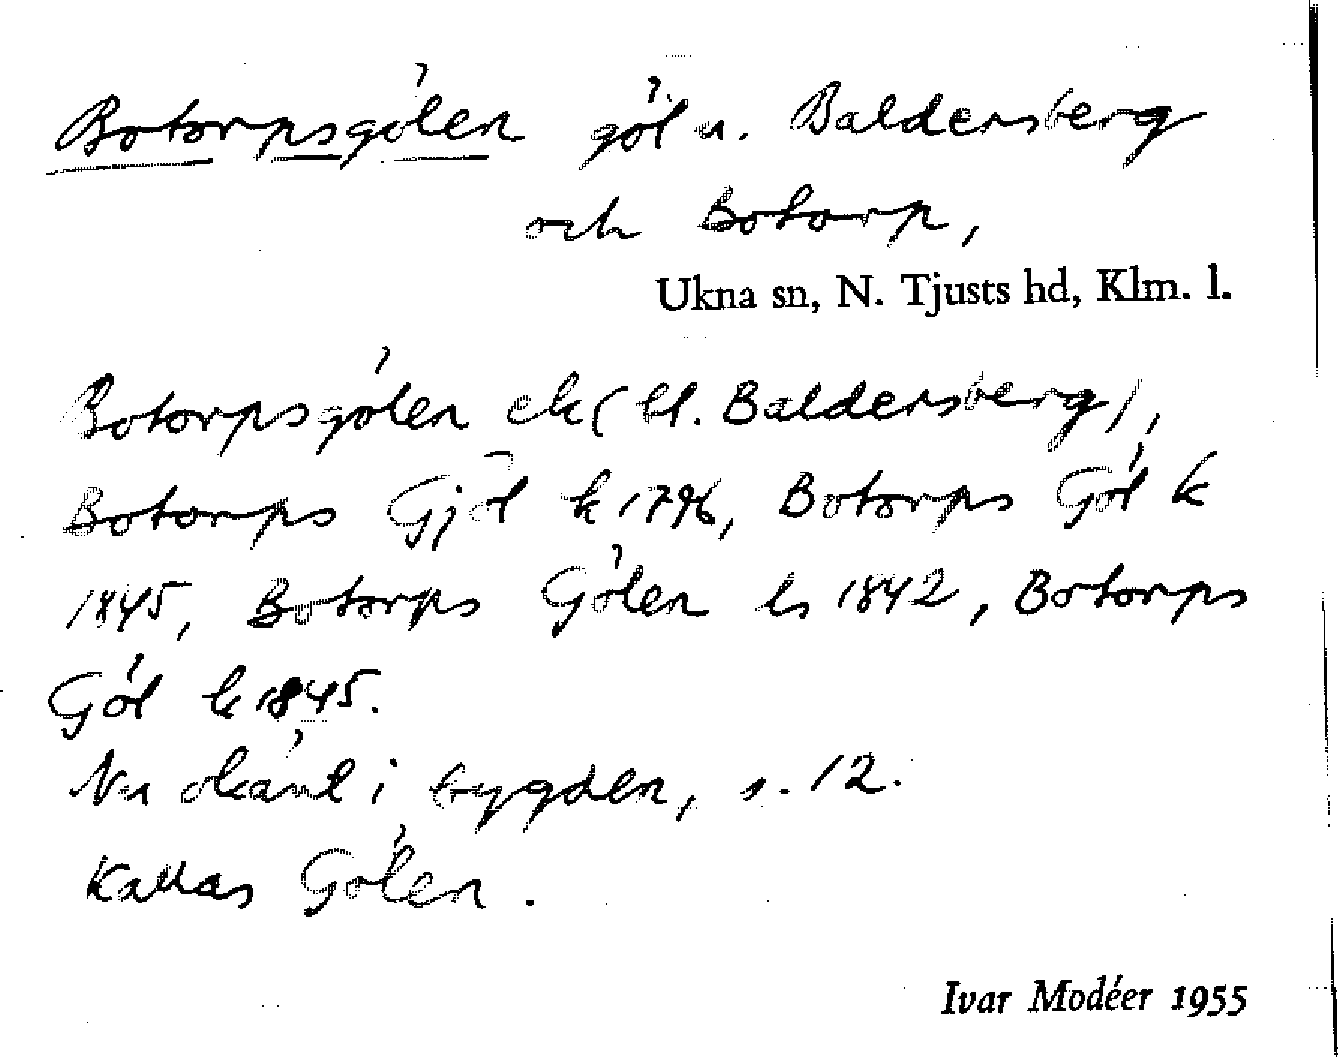 Botorpsgölen göl u. Baldersberg
och Botorp,
Ukna sn, N. Tjusts hd, Klm. l.
Botorpsgölen ek (bl. Baldersberg),
Botorps Gjöl k 1796, Botorps Göl k
1845, Botorps Gölen ls 1842, Botorps
Göl k 1845.
Nu okänt i bygden, s. 12.
Kallas Gölen.
Ivar Modéer 1955